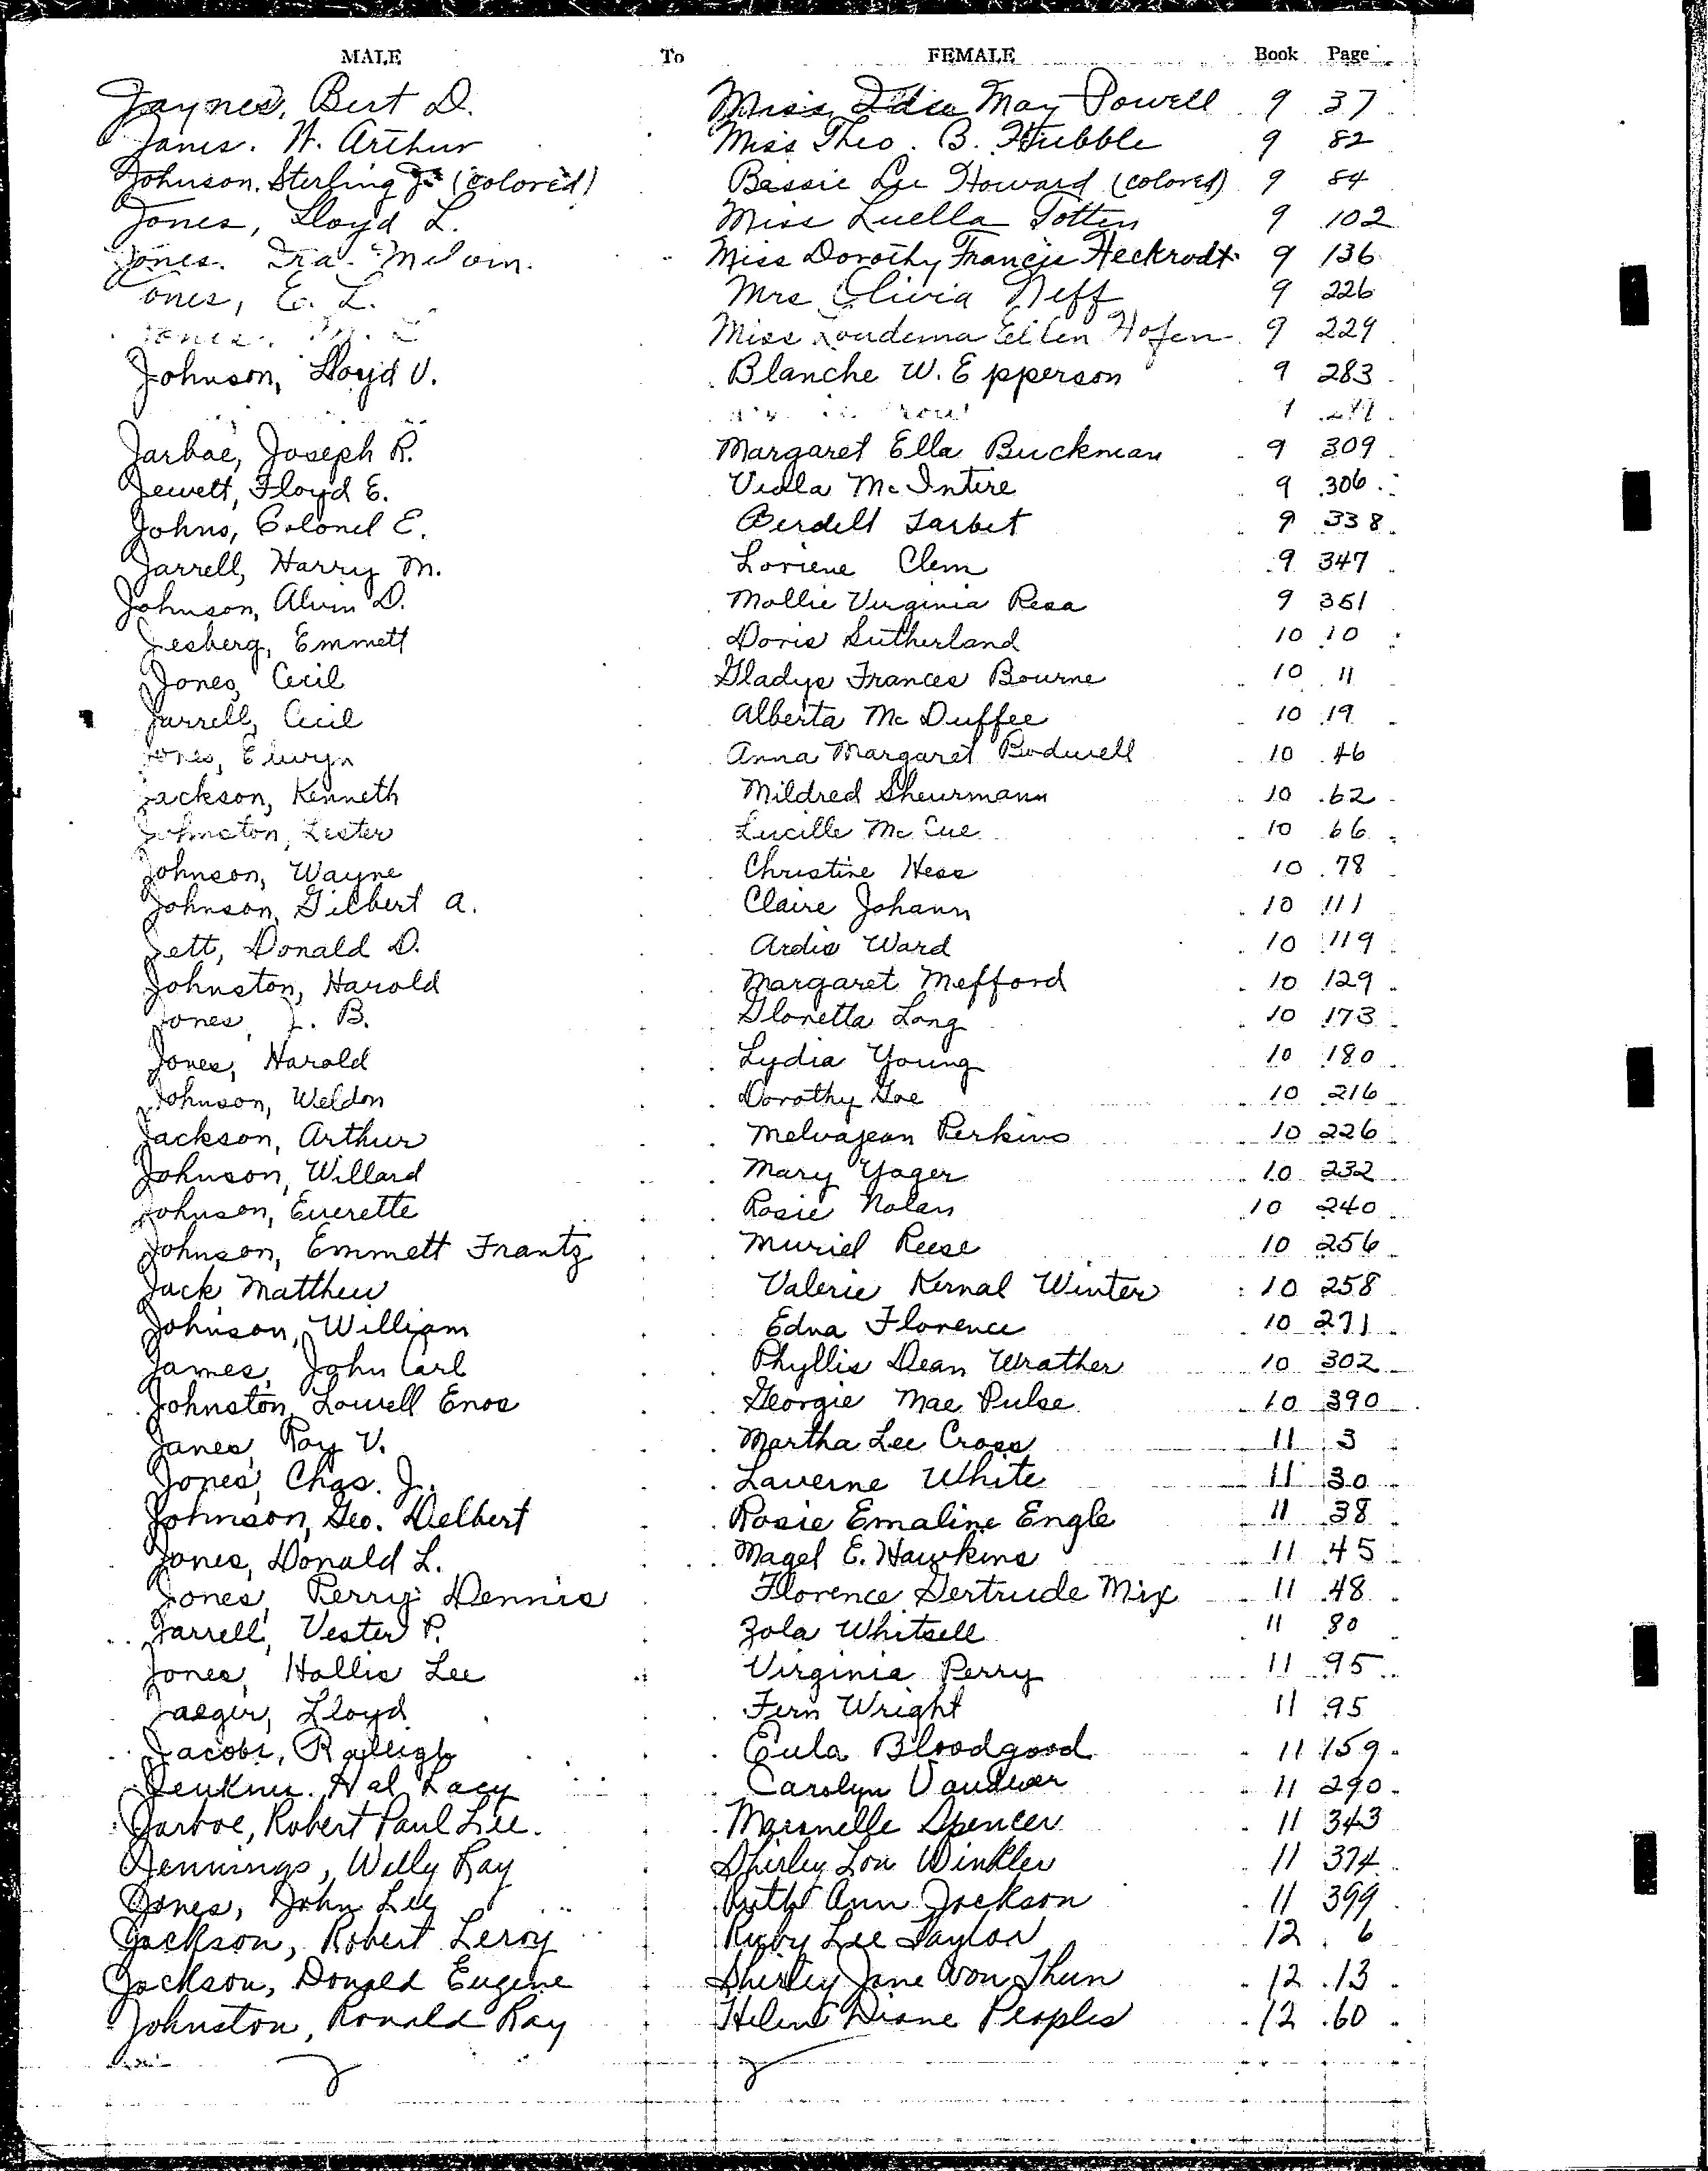 MALE To FEMALE Book Page
Jaynes, Bert D. Miss Ida May Powell 9 37
Janes. W. Arthur Miss Theo. B. Hubble 9 82
Johnson. Sterling Jr (colored) Bessie Lee Howard (colored) 9 84
Jones, Lloyd L. Miss Luella Totten 9 102
Jones. Ira Melvin. Miss Dorothy Francis Heckrodt 9 136
Jones, E. L. Mrs Olivia Neff 9 226
Jones. Miss Loudema Ellen Hofen 9 229
Johnson, Lloyd V. Blanche W. Epperson 9 283
9
Jarboe, Joseph R. Margaret Ella Buckman 9 309
Jewett, Floyd E. Viola McIntire 9 306
Johns, Colonel E. Berdell Tarbet 9 338
Jarrell, Harry M. Loriene Clem 9 347
Johnson, Alvin D. Mollie Virginia Resa 9 351
Jesberg, Emmett Doris Sutherland 10 10
Jones, Cecil Gladys Frances Bourne 10 11
Jarrell, Cecil Alberta McDuffee 10 19
Jones, Elwyn Anna Margaret Bodwell 10 46
Jackson, Kenneth Mildred Sheurmann 10 62
Johnston, Lester Lucille McCue 10 66
Johnson, Wayne Christine Hess 10 78
Johnson, Gilbert A. Claire Johann 10 111
Jett, Donald D. Ardis Ward 10 119
Johnston, Harold Margaret Mefford 10 129
Jones, J. B. Gloretta Long 10 173
Jones, Harold Lydia Young 10 180
Johnson, Weldon Dorothy Goe 10 216
Jackson, Arthur Melvajean Perkins 10 226
Johnson, Willard Mary Yager 10 232
Johnson, Everette Rosie Nolan 10 240
Johnson, Emmett Frantz Muriel Reese 10 256
Jack Matthew Valerie Kernal Winter 10 258
Johnson, William Edna Florence 10 271
James, John Carl Phyllis Dean Wrather 10 302
Johnston, Lowell Enos Georgie Mae Pulse 10 390
Janes, Ray V. Martha Lee Cross 11 3
Jones, Chas. J. Laverne White 11 30
Johnson, Geo. Delbert Rosie Emaline Engle 11 38
Jones, Donald L. Magel E. Hawkins 11 45
Jones, Perry Dennis Florence Gertrude Mix 11 48
Jarrell, Vester P. Zola Whitsell 11 80
Jones, Hollis Lee Virginia Perry 11 95
Jaeger, Lloyd Fern Wright 11 95
Jacobi, Raleigh Eula Bloodgood 11 159
Jenkins. Hal Lacy Carolyn Vandiver 11 290
Jarboe, Robert Paul Lee. Maronelle Spencer 11 343
Jennings, Willy Ray Shirley Lou Winkler 11 374
Jones, John Lee Ruth Ann Jackson 11 399
Jackson, Robert Leroy Ruby Lee Taylor 12 6
Jackson, Donald Eugene Shirley Jane Von Thun 12 13
Johnston, Ronald Ray Helen Diane Peoples 12 60